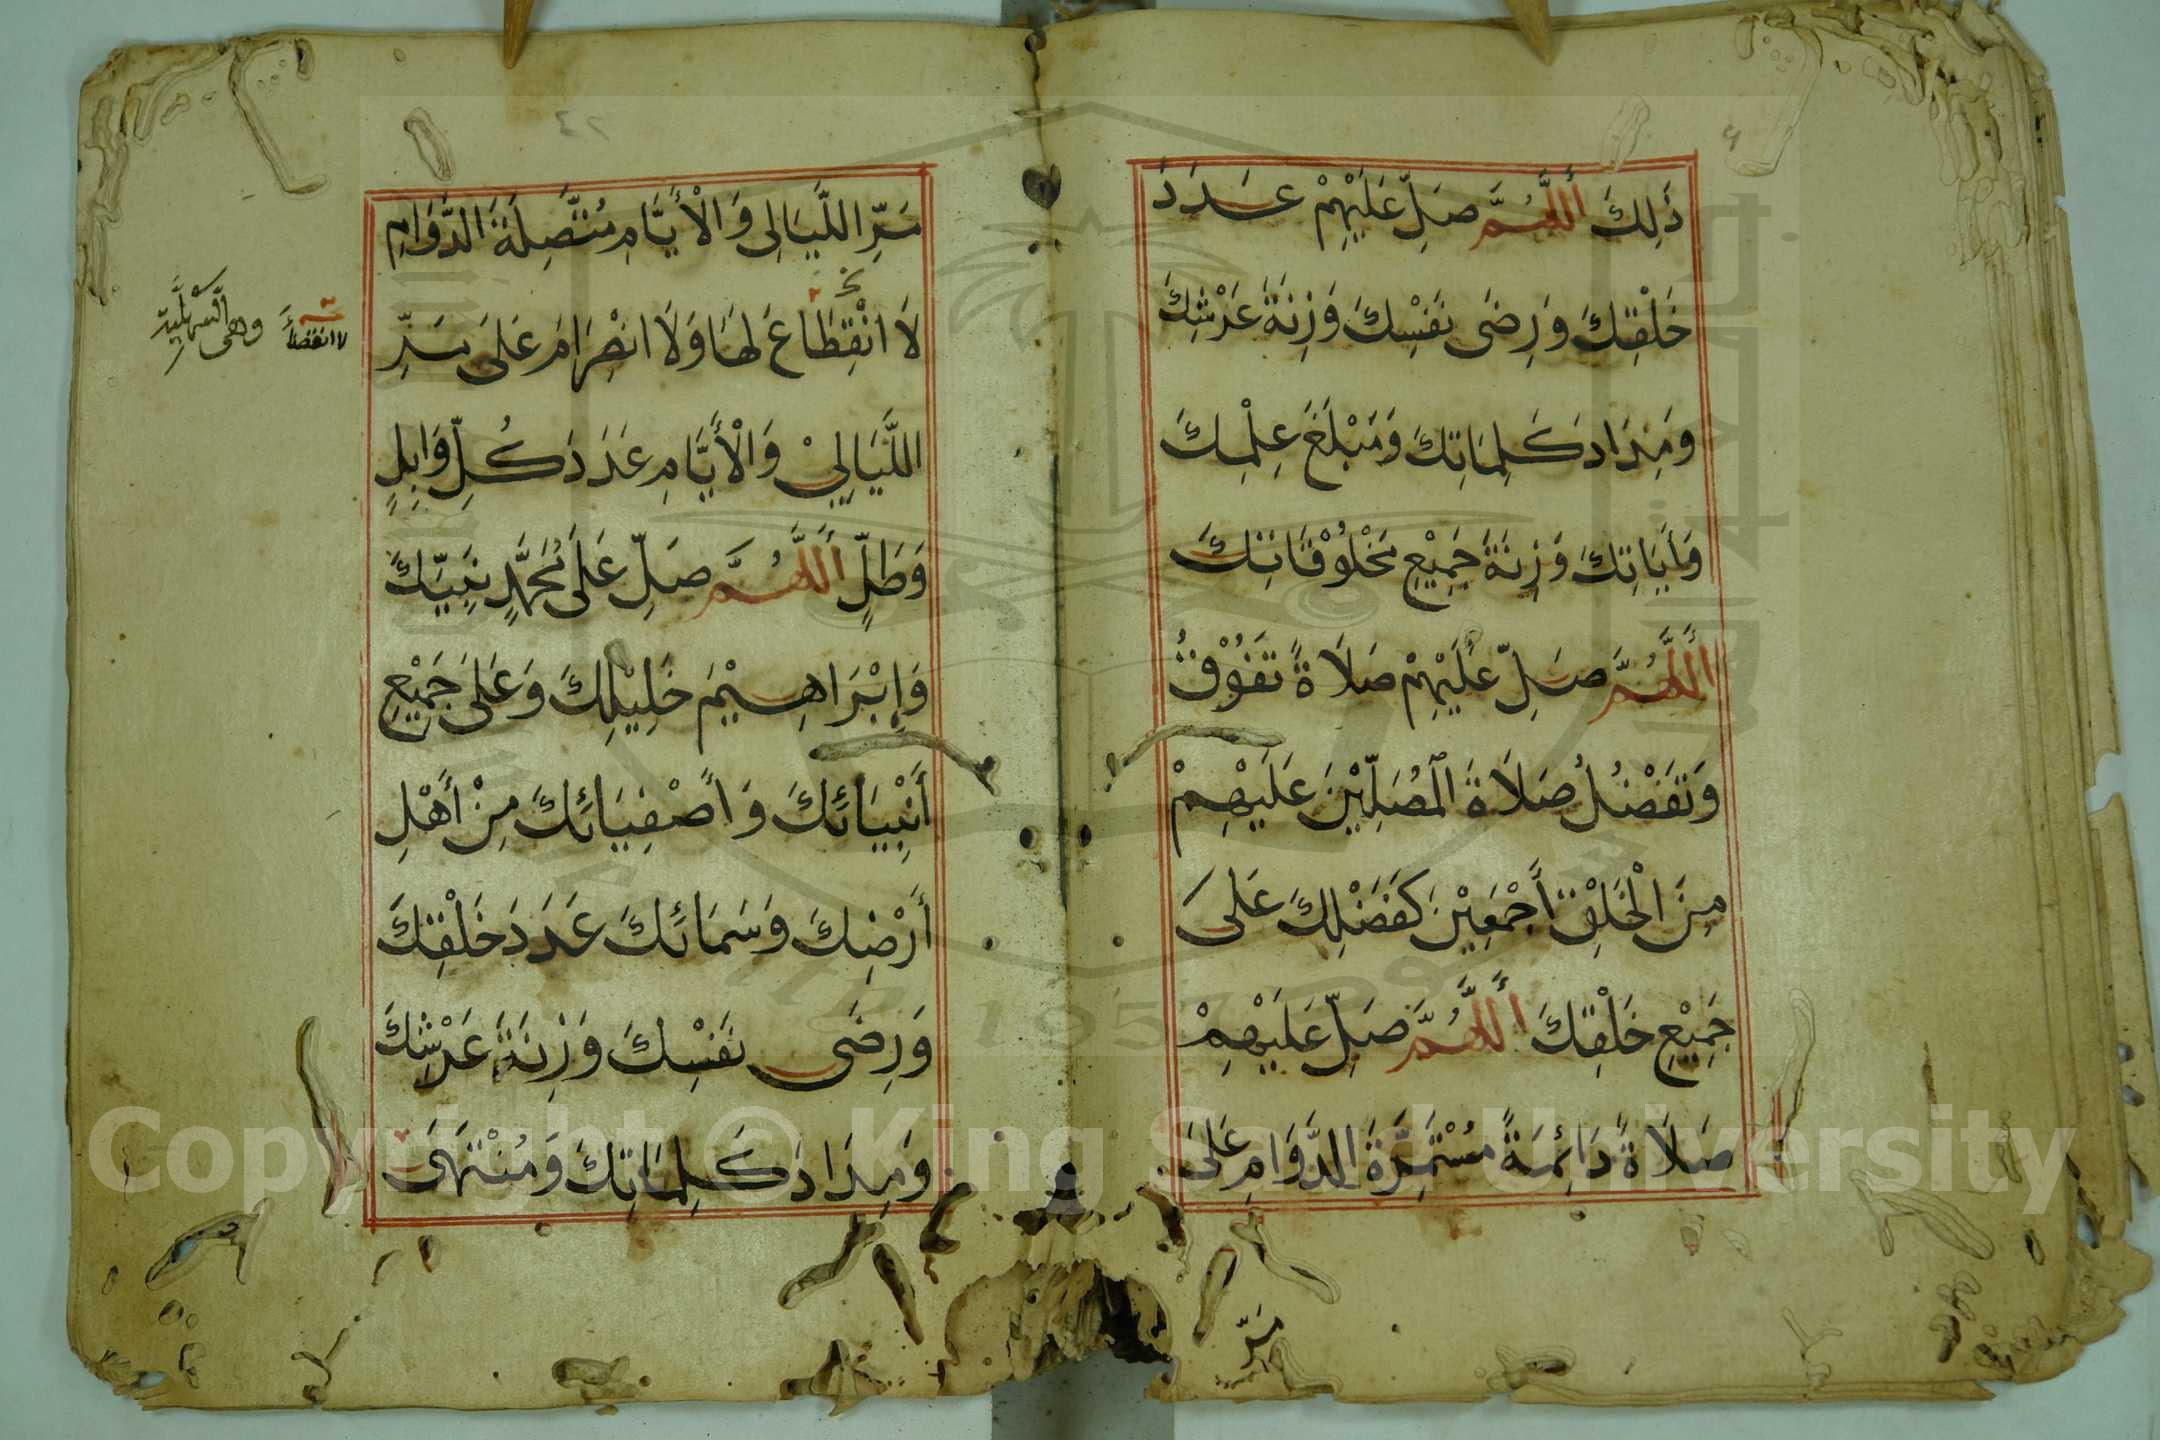 ذَلِكَ أَللَّهُمَّ صَلِّ عَلَيْهِمْ عَدَدَ
خَلْقِكَ وَرِضَى نَفْسِكَ وَزِنَةَ عَرْشِكَ
وَمِدَادَ كَلِمَاتِكَ وَمَبْلَغَ عِلْمِكَ
وَأَيَاتِكَ وَزِنَةَ جَمِيْعِ مَخْلُوْقَاتِكَ
أَللَّهُمَّ صَلِّ عَلَيْهِمْ صَلَاةً تَفُوْقُ
وَتَفْضُلُ صَلَاةَ الْمُصَلِّيْنَ عَلَيْهِمْ
مِنَ الْخَلْقِ أَجْمَعِيْنَ كَفَضْلِكَ عَلَى
جَمِيْعِ خَلْقِكَ أَللَّهُمَّ صَلِّ عَلَيْهِمْ
صَلَاةً دَائِمَةً مُسْتَمِرَّةَ الدَّوَامِ عَلَى
مَرِّ
مَرِّ اللَّيَالِى وَالْأَيَّامِ مُتَّصِلَةَ الدَّوَامِ
لَا انْقِطَاعَ لَهَا وَلَا انْصِرَامَ عَلَى مَرِّ
لا انقضاء
وهى السهيلية
اللَّيَالِيْ وَالْأَيَّامِ عَدَدَ كُلِّ وَابِلٍ
وَطَلٍّ أَللَّهُمَّ صَلِّ عَلَى مُحَمَّدٍ نَبِيِّكَ
وَإِبْرَاهِيْمَ خَلِيْلِكَ وَعَلَى جَمِيْعِ
أَنْبِيَائِكَ وَأَصْفِيَائِكَ مِنْ أَهْلِ
أَرْضِكَ وَسَمَائِكَ عَدَدَ خَلْقِكَ
وَرِضَى نَفْسِكَ وَزِنَةَ عَرْشِكَ
وَمِدَادَ كَلِمَاتِكَ وَمُنْتَهَى
Copyright © King Saud University
1957